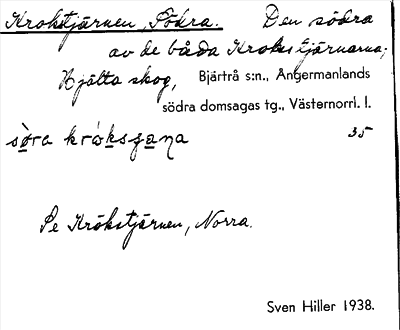 Krokstjärnen, Södra. Den södra
av de båda Krokstjärnarna;
Hjälta skog, Bjärtrå s:n., Ångermanlands
södra domsagas tg., Västernorrl. l.
sö̀ra krókstjana 35
Se Krökstjärnen, Norra.
Sven Hiller 1938.